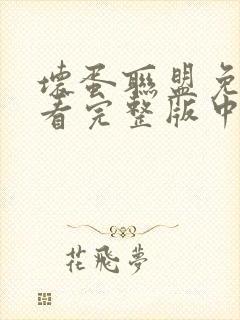 壞蛋聯盟免
看完整版中
花飛夢